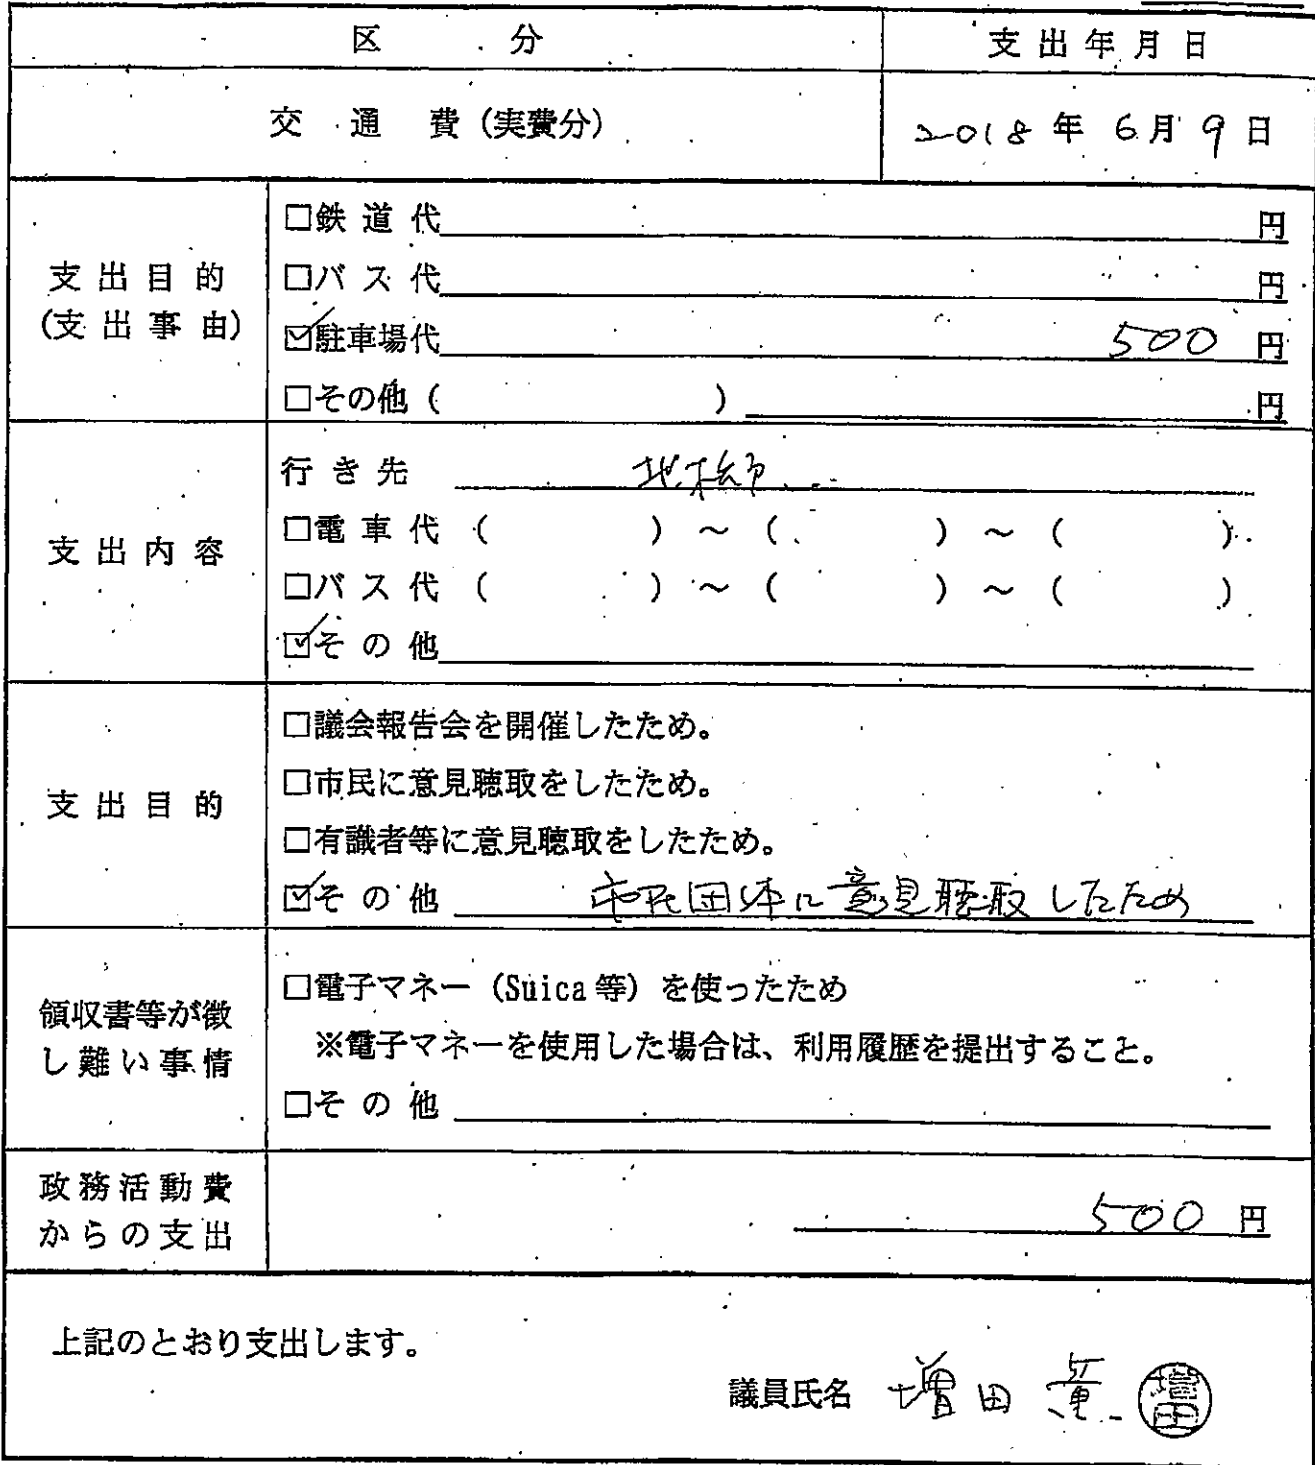 区 分 支出年月日
交通費(実費分) 2018年6月9日
支出目的
(支出事由)
□鉄道代 円
□バス代 円
☑駐車場代 500円
□その他( ) 円
支出内容
行き先
□電車代( )~( )~( )
□バス代( )~( )~( )
☑その他
支出目的
□議会報告会を開催したため。
□市民に意見聴取をしたため。
□有識者等に意見聴取をしたため。
☑その他 市民団体に意見聴取したため
領収書等が徴
し難い事情
□電子マネー(Suica等)を使ったため
※電子マネーを使用した場合は、利用履歴を提出すること。
□その他
政務活動費
からの支出
500円
上記のとおり支出します。
議員氏名 増田 薫 増田